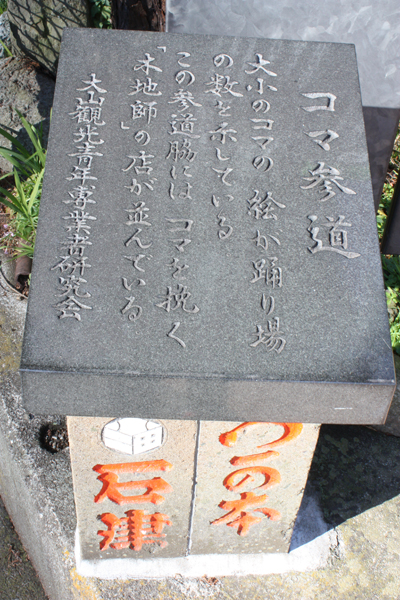 コマ参道
大小のコマの絵が踊り場
の数を示している
この参道脇にはコマを挽く
「木地師」の店が並んでいる
大山観光青年専業者研究会
つの本
石津